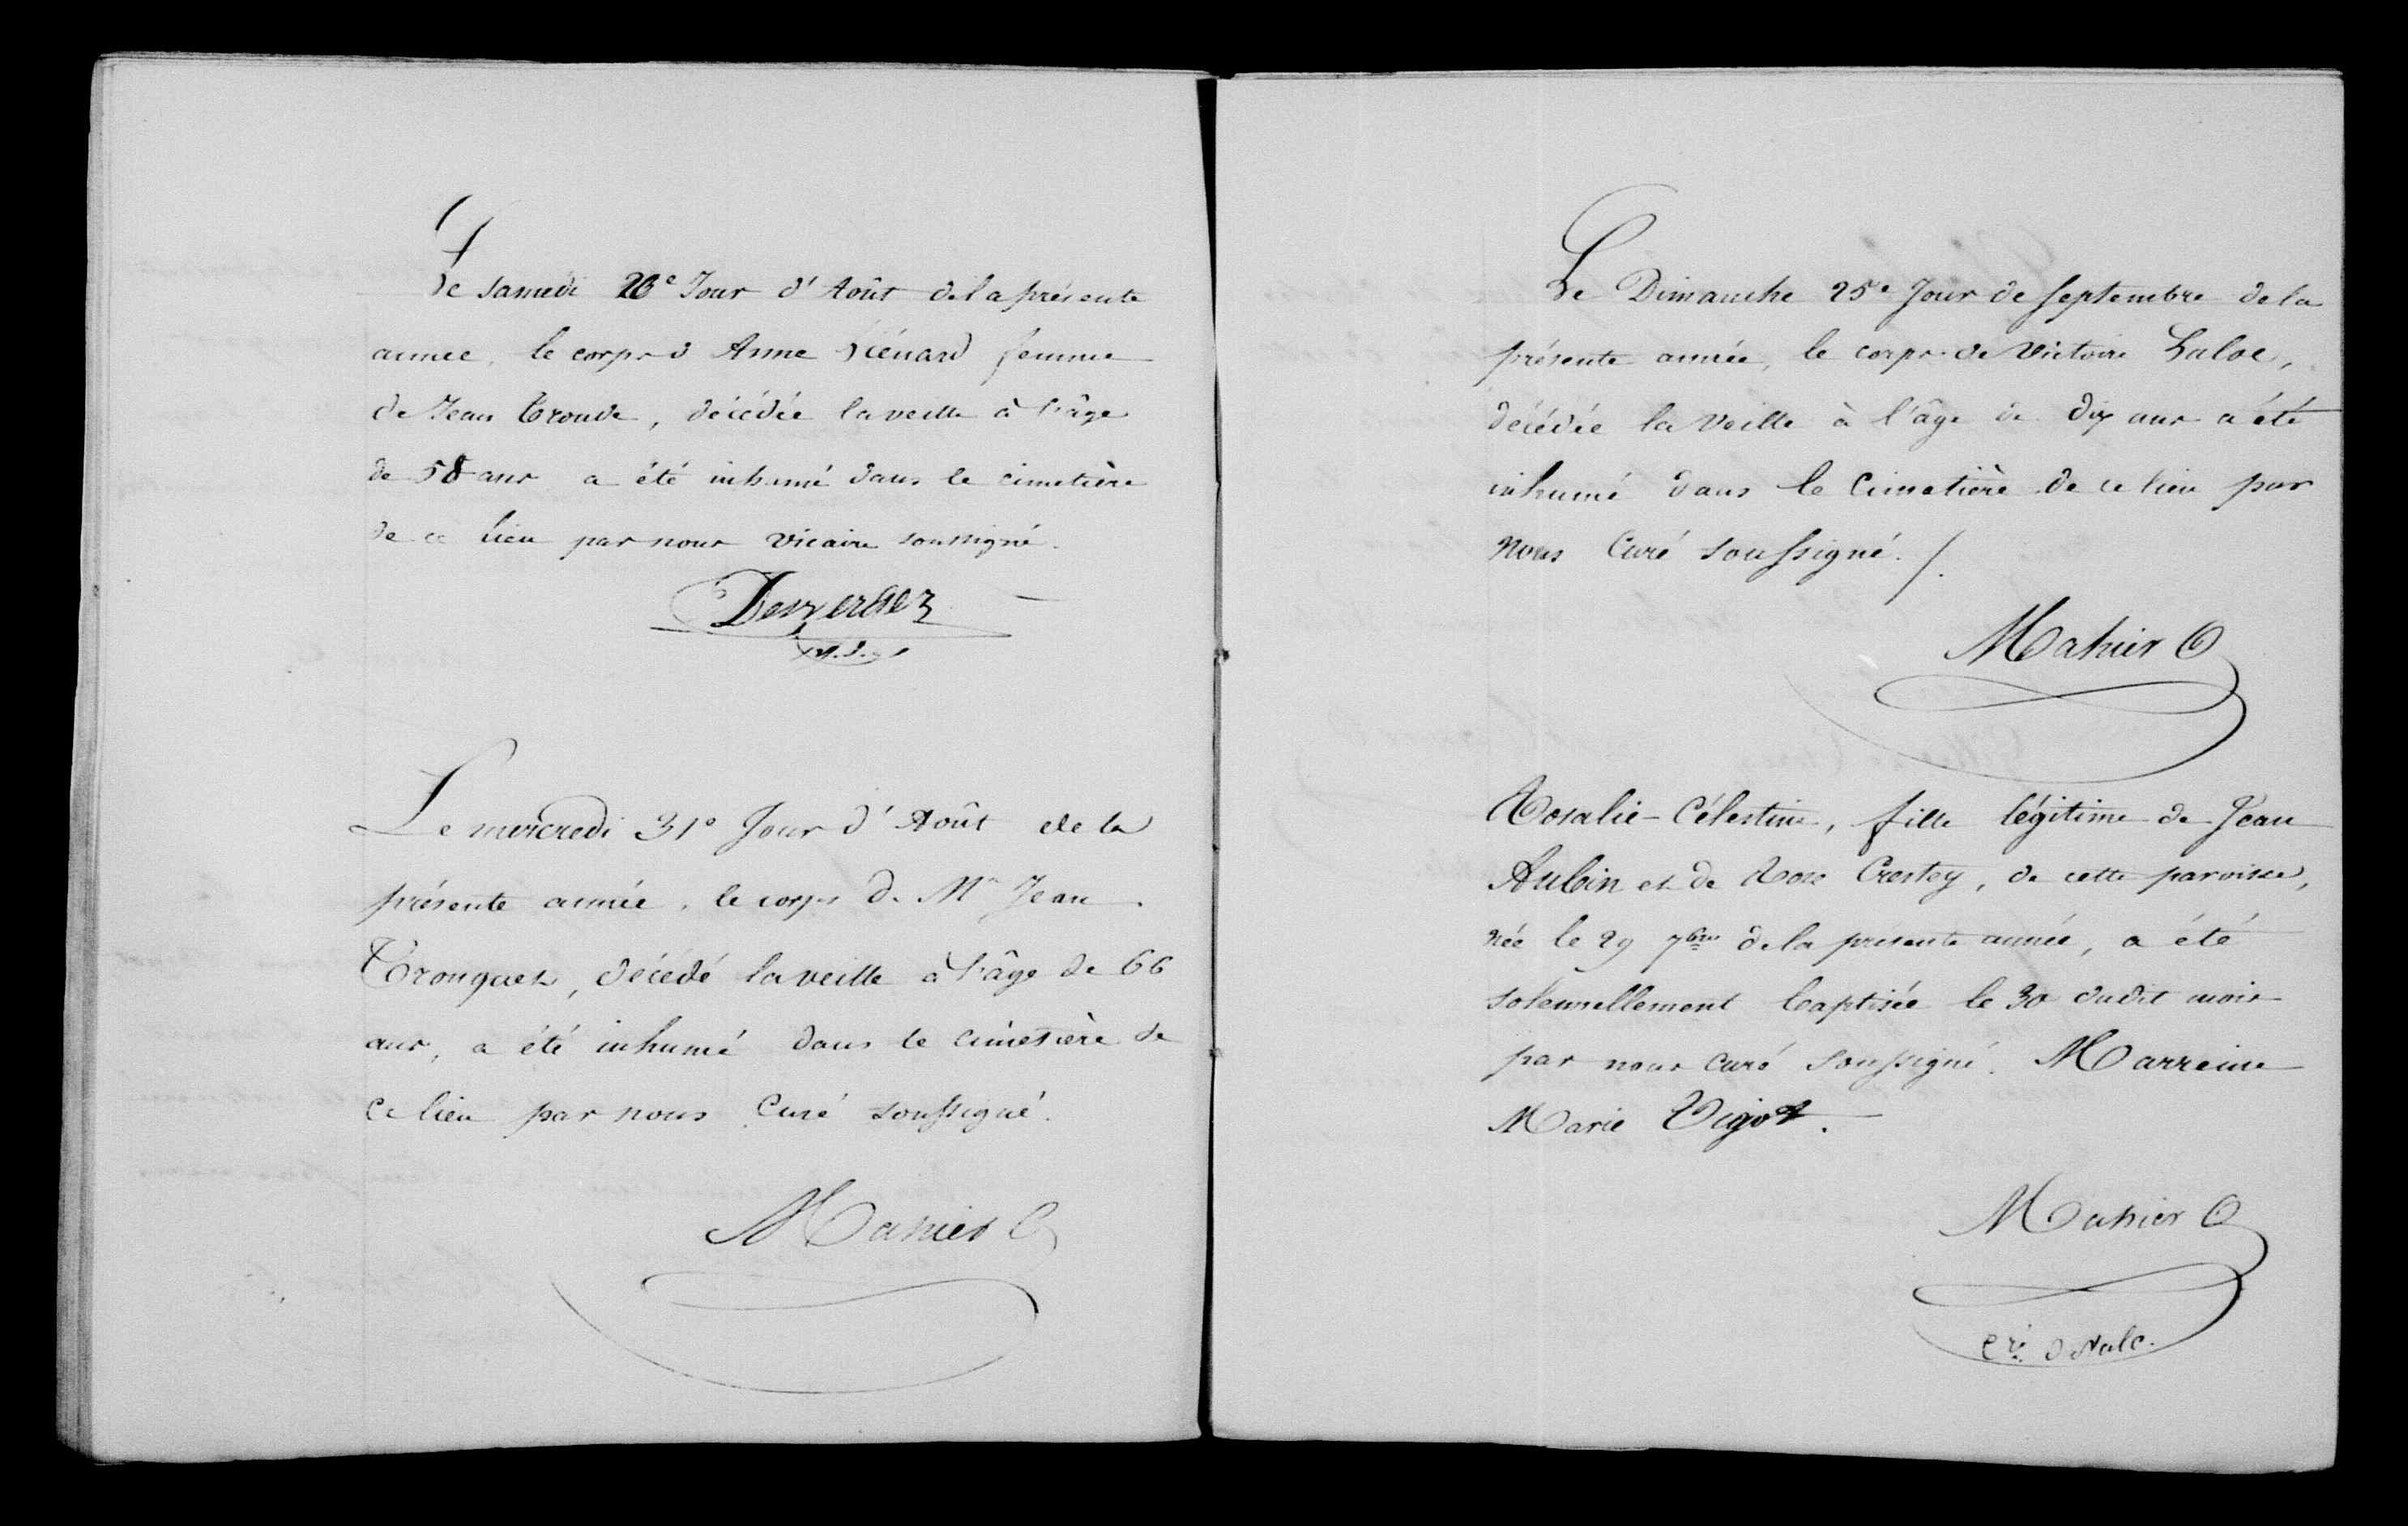 Le samedi 20e Jour d'Août de la présente
année, le corps d Anne Liénard femme
de Jean Troude, décédée la veille à l'âge
de 58 ans a été inhumé dans le cimetière
de ce lieu par nous vicaire soussigné.
Le mercredi 31e Jour d'Août de la
présente année, le corps de Mr Jean
Trouquet, décédé la veille à l'âge de 66
ans, a été inhumé dans le cimetière de
ce lieu par nous Curé soussigné.
Mahier C
Le Dimanche 25e Jour de septembre de la
présente année, le corps de Victoire Laloe,
décédée la veille à l'âge de dix ans a été
inhumé dans le Cimetière de ce lieu par
nous Curé soussigné. /.
Mahier C
Rosalie-Célestine, fille légitime de Jean
Aubin et de Rose Crestey, de cette paroisse,
née le 29 7bre de la présente année, a été
solennellement baptisée le 30 dudit mois
par nous curé soussigné. Marreine
Marie Vigot.
Mahier C